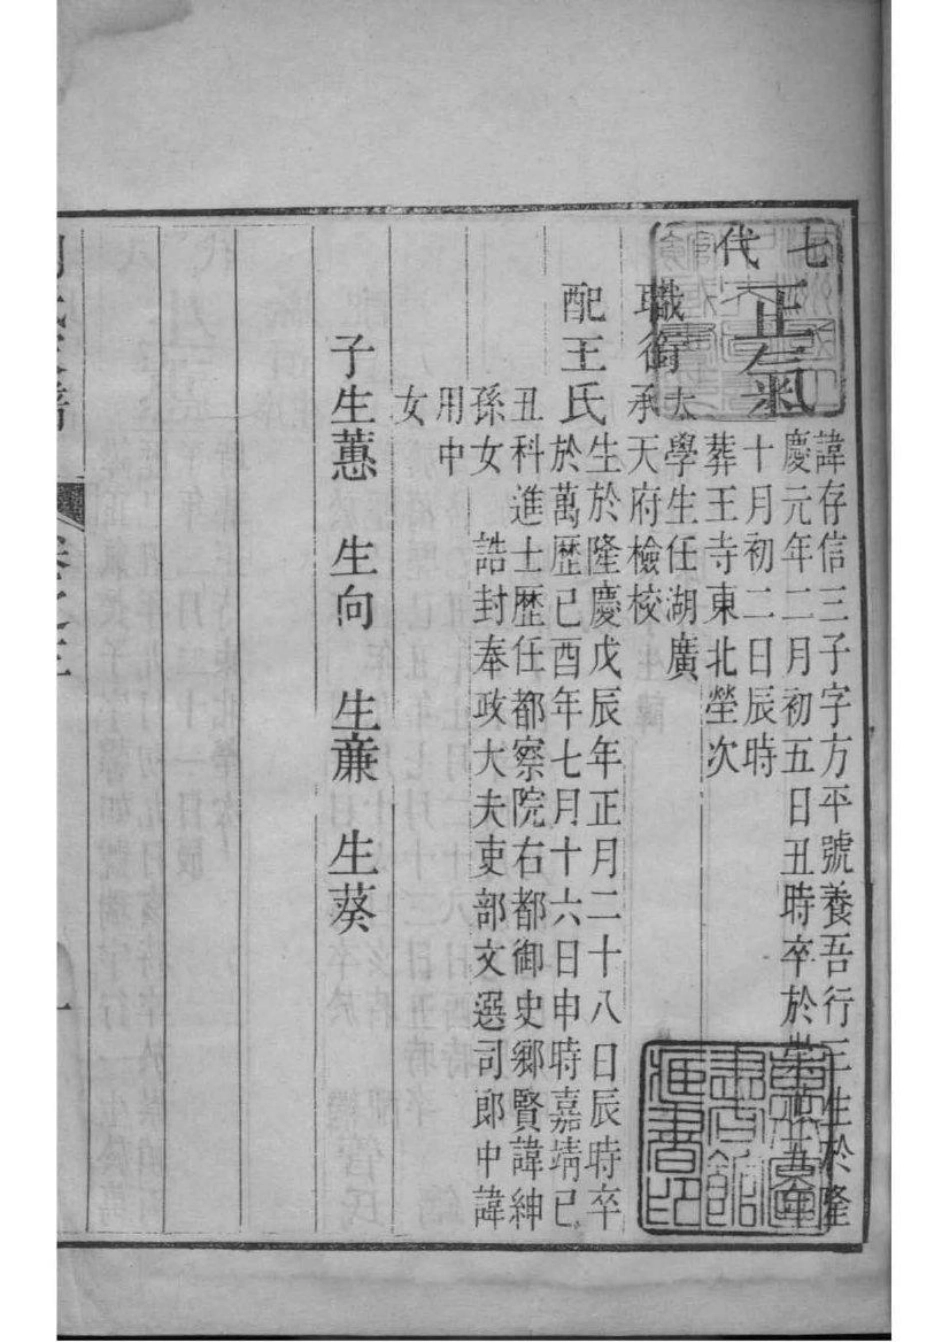 七代
正氣
諱存信三子字方平號養吾行三生於隆
慶元年二月初五日丑時卒於崇禎五年
十月初二日辰時
葬王寺東北塋次
職銜
太學生任湖廣
承天府檢校
配王氏
生於隆慶戊辰年正月二十八日辰時卒
於萬歷己酉年七月十六日申時嘉靖己
丑科進士歷任都察院右都御史鄉賢諱紳
孫女 誥封奉政大夫吏部文選司郎中諱
用中
女
子生蕙 生向 生蔪 生葵
卷之三
一